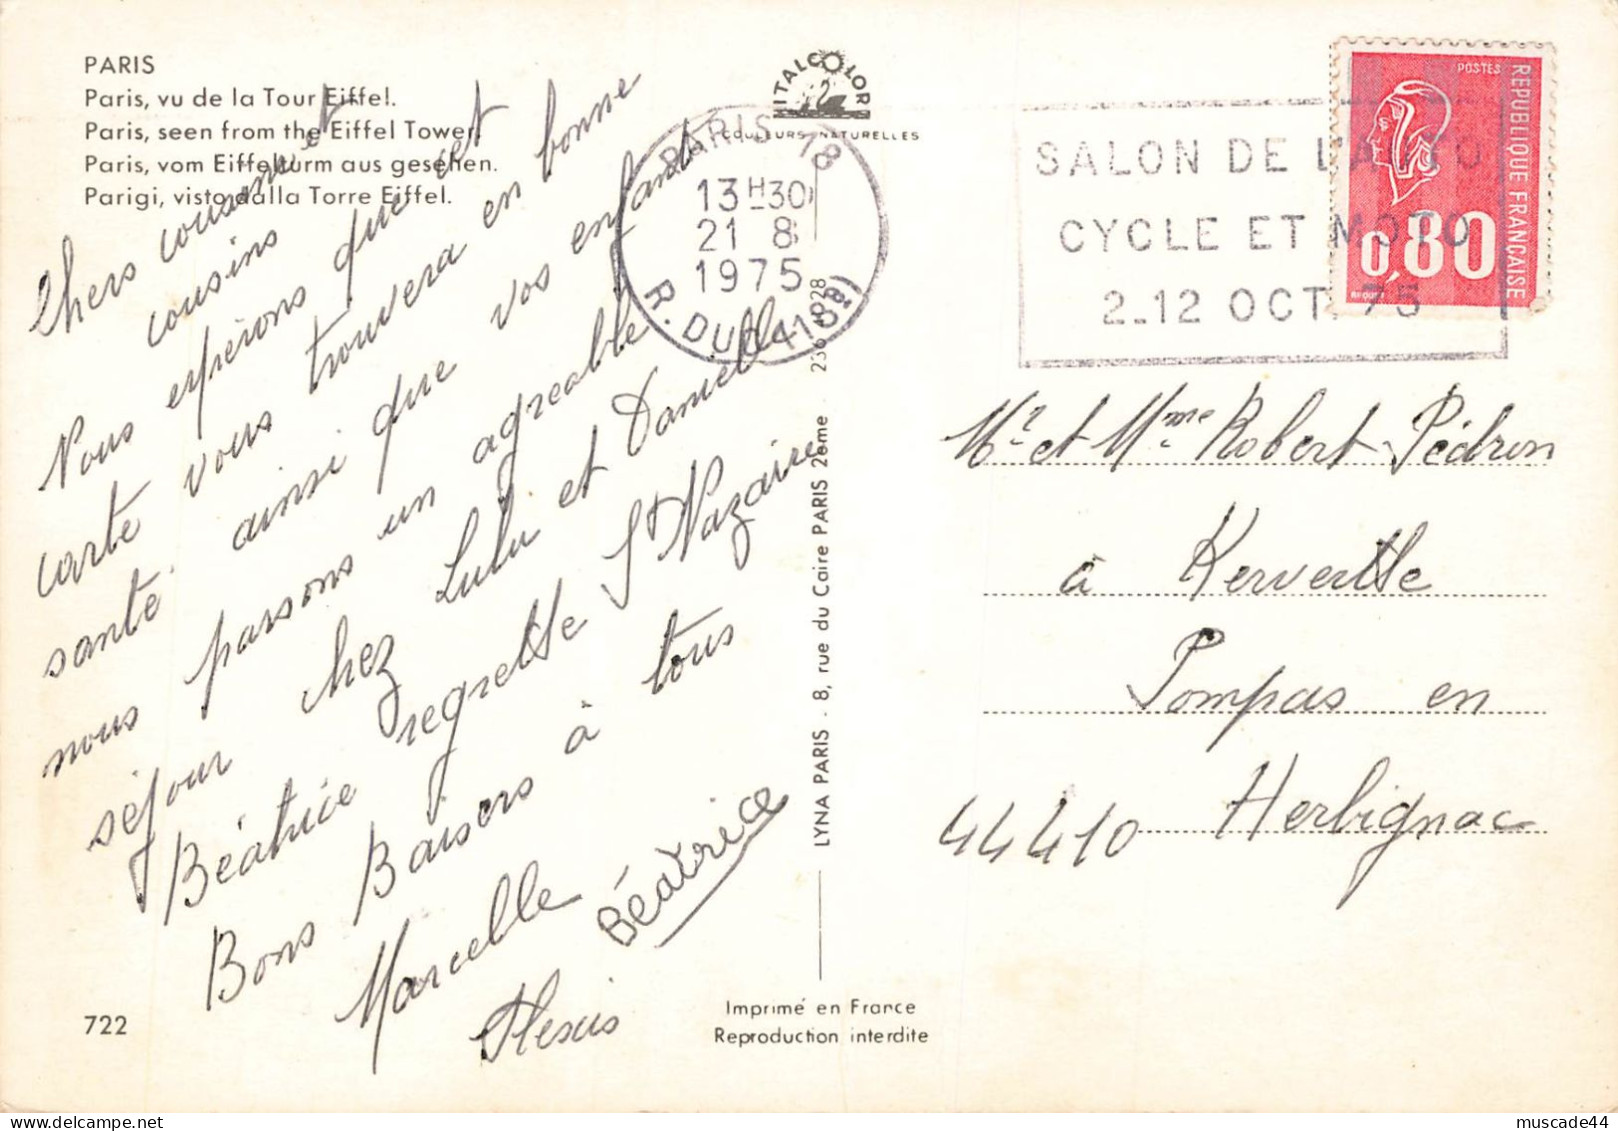 PARIS
Paris, vu de la Tour Eiffel.
Paris, seen from the Eiffel Tower.
Paris, vom Eiffelturm aus gesehen.
Parigi, visto dalla Torre Eiffel.
Chers cousine et
cousins
Nous espérons que cet
carte vous trouvera en bonne
santé. ainsi que vos enfants
nous passons un agréable
séjour chez Lulu et Danielle
Béatrice regrette St Nazaire
Bons Baisers à tous
Marcelle
Béatrice
Alexis
722
ITALCOLOR
COULEURS NATURELLES
PARIS 18
13H30
21 8
1975
R. DUC (1108)
SALON DE L'AUTO
CYCLE ET MOTO
2-12 OCT. 75
POSTES
REPUBLIQUE FRANÇAISE
0,80
LYNA PARIS - 8, rue du Caire PARIS 2ème - 236 1028
Imprimé en France
Reproduction interdite
Mr et Mme Robert Pédron
à Kerverttle
Pompas en
44410 Herbignac
muscade44